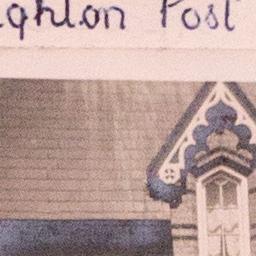 ghton Post